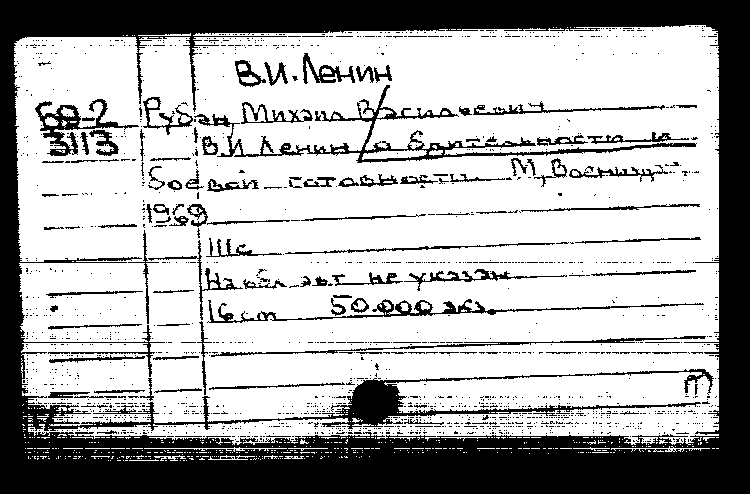 В.И. Ленин
69-2 Рубан, Михаил Васильевич
3113 В.И Ленин о бдительности и
боевой готовности. М, Воениздат,
1969
111с
На обл авт не указан
16cm 50.000 экз.